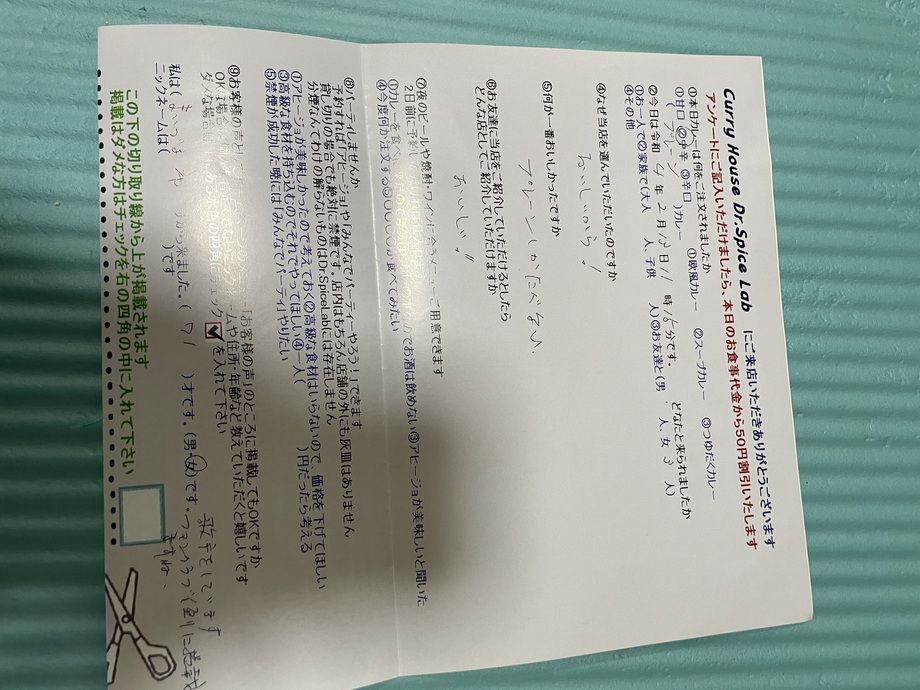 Curry House Dr.Spice Lab にご来店いただきありがとうございます
アンケートにご記入いただけましたら、本日のお食事代金から50円割引いたします
①本日カレーは何をご注文されましたか ①欧風カレー ②スープカレー ③つゆだくカレー
①甘口 ②中辛 ③辛口
(プレーン)カレー
②今日は令和 4年2月13日 11時 分です。 どなたと来られましたか
①お一人で②家族で(大人 人、子供 人)③お友達と(男 人、女 人)
④その他
④なぜ当店を選んでいただいたのですか
おいしいから!
⑤何が一番おいしかったですか
プレーン
⑥お友達に当店をご紹介していただけるとしたら
どんな店としてご紹介していただけますか
おいしい!!
⑦夜のビールや焼酎・ワインに ご用意できます
2日前に予約
①カレーを食べ でお酒は飲めない③アヒージョが美味しいと聞いた
④今度何か注文する⑤〇〇〇〇が食べてみたい
⑧パーティしませんか
予約すれば「アヒージョ」や「みんなでパーティーやろう!」できます
貸し切りの場合でも絶対に禁煙です。店内はもちろん店舗の外にも灰皿はありません
分煙なんてわけの解らないものはDr.SpiceLabには存在しません
①アヒージョが美味しかったので考えておく②高級な食材はいらないので、価格を下げてほしい
③高級な食材を持ち込むのでそれでやってほしい④一人( )円だったら考える
⑤禁煙が成功した暁には「みんなでパーティ」やりたい
⑨お客様の声と 「お客様の声」のところに掲載してもOKですか
OKな場合 ムや住所・年齢など教えていただくと嬉しいです
ダメな場合 の四角にチェック✓を入れて下さい
私は( から来ました。( 71 )才です。(男・女)です。
ニックネームは( )です
歌手をしています
この下の切り取り線から上が掲載されます
掲載はダメな方はチェックを右の四角の中に入れて下さい